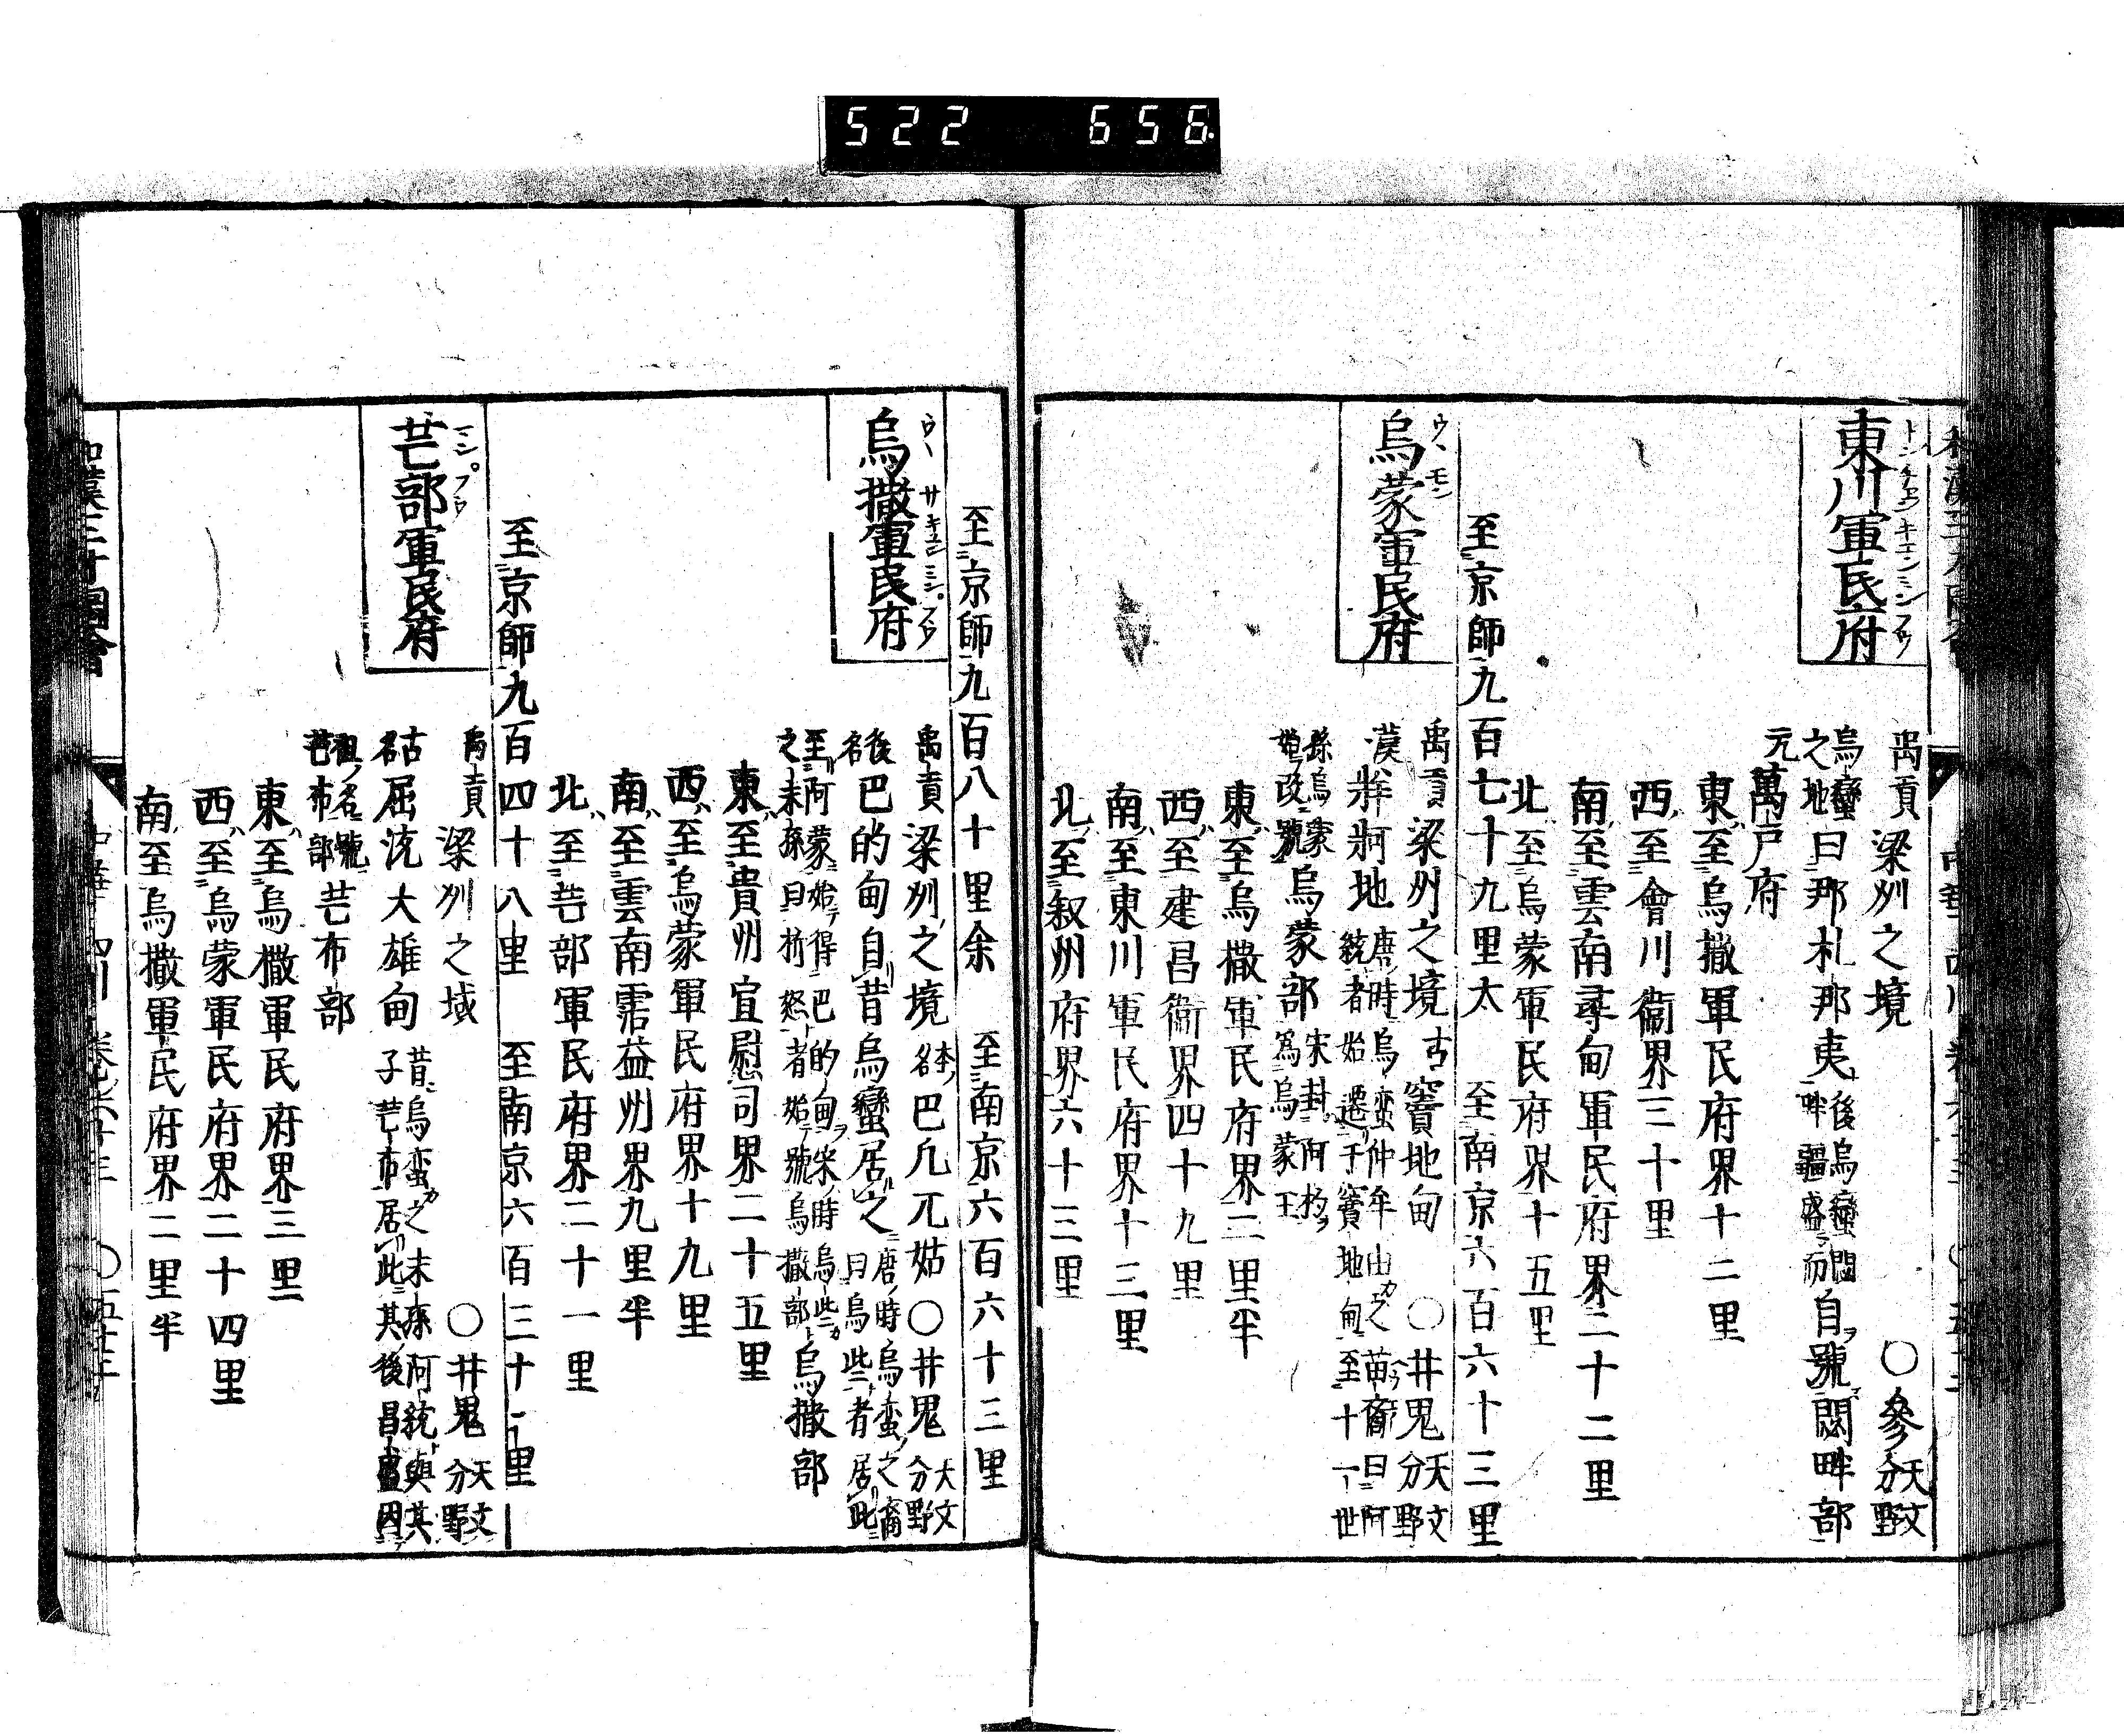 522 656
東川軍民府
トンチヱンキエンミンフウ
禹貢梁州之境 ○參 天文分野
烏蠻之地 曰那札那夷 後烏蠻閟畔疆盛而 自號閟畔部
元萬戸府
東至烏撒軍民府界十二里
西至會川衞界三十里
南至雲南尋甸軍民府界二十二里
北至烏蒙軍民府界十五里
至京師九百七十九里太 至南京六百六十三里
烏蒙軍民府
ウヽモン
禹貢梁州之境古竇地甸 ○井鬼 天文分野
漢牂牁地 唐時烏蛮仲牟由之苗裔曰阿統者始遷于竇地甸至十一世
孫烏蒙始改號 烏蒙部 宋封阿杓爲烏蒙王
東至烏撒軍民府界二里半
西至建昌衞界四十九里
南至東川軍民府界十三里
北至叙州府界六十三里
至京師九百八十里余 至南京六百六十三里
烏撒軍民府
ウヽサキエンミンフウ
禹貢梁州之境 本名 巴凡兀姑 ○井鬼 天文分野
後名 巴的甸自昔烏蠻居之 唐時烏蛮之裔曰烏些者居此
至阿蒙始得巴的甸宋時烏些之末孫曰折怒者始號烏撒部 烏撒部
東至貴州宣慰司界二十五里
西至烏蒙軍民府界十九里
南至雲南霑益州界九里半
北至芒部軍民府界二十一里
至京師九百四十八里 至南京六百三十一里
芒部軍民府
マンプウ
禹貢梁州之域 ○井鬼 天文分野
古名 屈流大雄甸 昔烏蛮之末孫阿統與其子芒布居此其後昌盛因
祖名號芒布部 芒布部
東至烏撒軍民府界三里
西至烏蒙軍民府界二十四里
南至烏撒軍民府界二里半